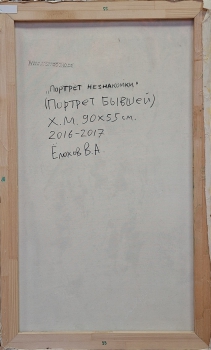 „Портрет незнакомки"
(Портрет Бывшей)
Х.М. 90х55см.
2016-2017
В.А